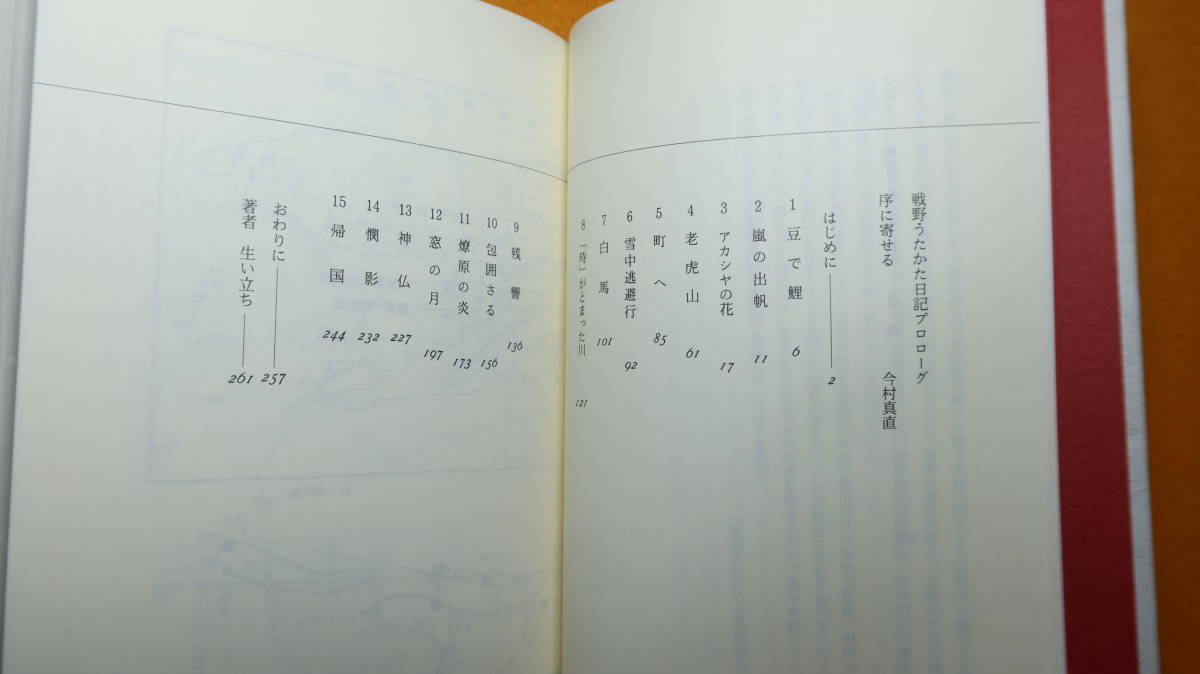 戦野うたかた日記プロローグ
序に寄せる　今村真直
はじめに――2
1 豆で鯉 6
2 嵐の出帆 11
3 アカシヤの花 17
4 老虎山 61
5 町へ 85
6 雪中逃避行 92
7 白馬 101
8 「時」がとまった川 121
9 残響 136
10 包囲さる 156
11 燎原の炎 173
12 窓の月 197
13 神仏 227
14 憫影 232
15 帰国 244
おわりに――257
著者 生い立ち――261